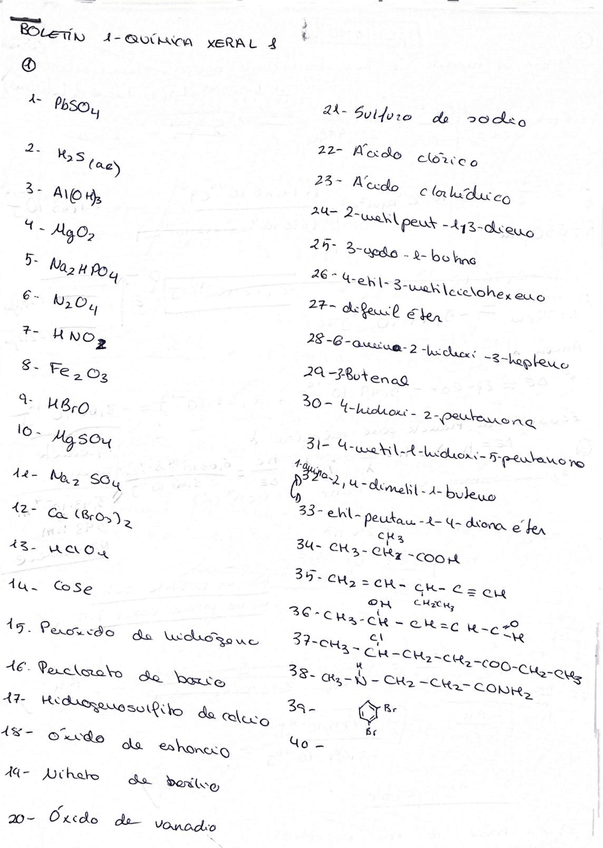 BOLETÍN 1-QUÍMICA XERAL 1
①
1- PbSO4
2- H2S(ac)
3- Al(OH)3
4- MgO2
5- Na2HPO4
6- N2O4
7- HNO2
8- Fe2O3
9- HBrO
10- MgSO4
11- Na2SO4
12- Ca(BrO3)2
13- HClO4
14- CoSe
15. Peróxido de hidróxeno
16. Perclorato de bario
17- Hidrogenosulfito de calcio
18- Óxido de estroncio
19- Nitrato de berilio
20- Óxido de vanadio
21- Sulfuro de sodio
22- Ácido clórico
23- Ácido clorhídrico
24- 2-metilpent-1,3-dieno
25- 3-yodo-1-butino
26- 4-etil-3-metilciclohexeno
27- difenil éter
28-6-amino-2-hidroxi-3-hepteno
29-3Butenal
30- 4-hidroxi-2-pentanona
31- 4-metil-1-hidroxi-5-pentanona
1-amino
32-2,4-dimetil-1-buteno
33-etil-pentan-1-4-diona éter
CH3
34- CH3-CH2-COOH
35- CH2=CH-CH-C≡CH
CH2CH3
OH
36-CH3-CH-CH=CH-C-H
O
Cl
37-CH3-CH-CH2-CH2-COO-CH2-CH3
H
38- CH3-N-CH2-CH2-CONH2
39- Br
Br
40-